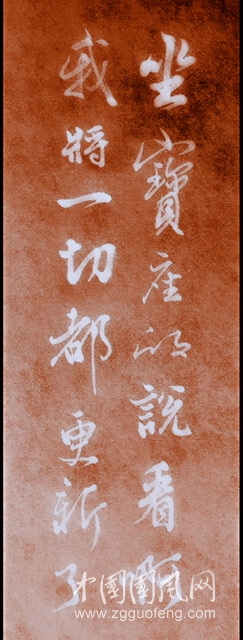 坐寶座的說看啊
我將一切都更新了
中國國風网
www.zgguofeng.com